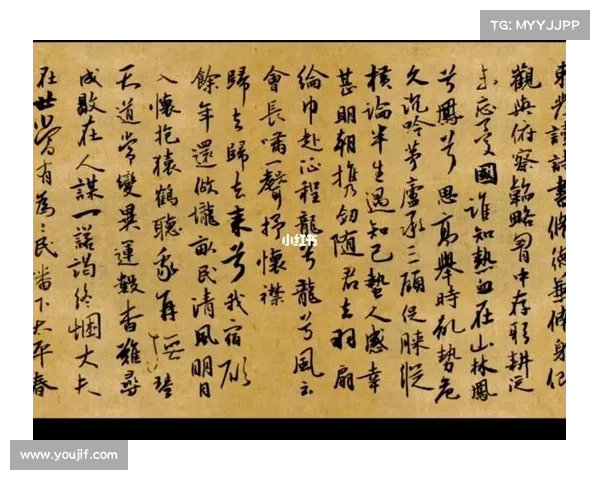 束發讀詩書修德兼修身仰
觀與俯察韜略胸中存躬耕從
未忘憂國誰知熱血在山林鳳
兮鳳兮思高舉時亂勢危
久沉吟茅廬承三顧促膝縱
橫論半生遇知己蟄人感幸
甚明朝携劍隨君去羽扇
綸巾赴征程龍兮龍兮風雲
會長嘯一聲抒懷襟
歸去歸去來兮我宿願
餘年還做壟畝民清風明月
入懷抱猿鶴聽我再撫琴
天道常變異運數杳難尋
成敗在人謀一諾竭終悃丈夫
在世當有為々民播下太平春
小红书
TG: MYYJJPP
www.youjif.com